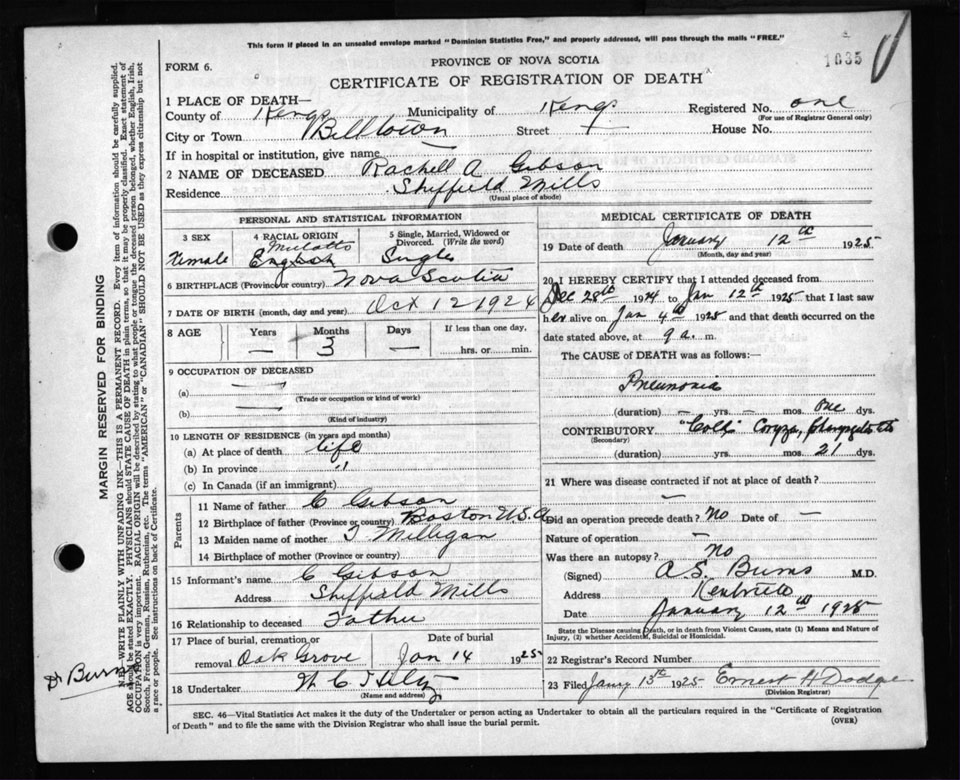 This form if placed in an unsealed envelope marked "Dominion Statistics Free," and properly addressed, will pass through the mails "FREE."
FORM 6.
PROVINCE OF NOVA SCOTIA
1035
CERTIFICATE OF REGISTRATION OF DEATH
1 PLACE OF DEATH—
County of Kings Municipality of Kings Registered No. one
(For use of Registrar General only)
City or Town Billtown Street House No.
If in hospital or institution, give name
2 NAME OF DECEASED Rachell A Gibson
Residence Sheffield Mills
(Usual place of abode)
PERSONAL AND STATISTICAL INFORMATION
3 SEX 4 RACIAL ORIGIN 5 Single, Married, Widowed or Divorced. (Write the word)
Female Mulatto English Single
6 BIRTHPLACE (Province or country) Nova Scotia
7 DATE OF BIRTH (month, day and year) Oct 12 1924
8 AGE Years Months Days If less than one day,
— 3 — hrs. or min.
9 OCCUPATION OF DECEASED
(a) —
(Trade or occupation or kind of work)
(b) —
(Kind of industry)
10 LENGTH OF RESIDENCE (in years and months)
(a) At place of death life
(b) In province "
(c) In Canada (if an immigrant)
Parents
11 Name of father C Gibson
12 Birthplace of father (Province or country) Boston U.S.A
13 Maiden name of mother T Milligan
14 Birthplace of mother (Province or country)
15 Informant's name C Gibson
Address Sheffield Mills
16 Relationship to deceased Father
17 Place of burial, cremation or removal Oak Grove Date of burial Jan 14 1925
18 Undertaker
(Name and address)
MEDICAL CERTIFICATE OF DEATH
19 Date of death January 12th 1925
(Month, day and year)
20 I HEREBY CERTIFY that I attended deceased from
Dec 28th 1924 to Jan 12th 1925 that I last saw
her alive on Jan 4th 1925 and that death occurred on the
date stated above, at 9 a. m.
The CAUSE of DEATH was as follows:
Pneumonia
(duration) — yrs. — mos. one dys.
CONTRIBUTORY "Cold" Coryza,
(Secondary)
(duration) yrs. mos. 21 dys.
21 Where was disease contracted if not at place of death?
—
Did an operation precede death? No Date of —
Nature of operation —
Was there an autopsy? No
(Signed) A.S. Burns M.D.
Address Kentville
Date January 12th 1925
State the Disease causing Death, or in death from Violent Causes, state (1) Means and Nature of Injury, (2) whether Accidental, Suicidal or Homicidal.
22 Registrar's Record Number
23 Filed Jany 13th 1925 Ernest H Dodge
(Division Registrar)
SEC. 46—Vital Statistics Act makes it the duty of the Undertaker or person acting as Undertaker to obtain all the particulars required in the "Certificate of Registration
of Death" and to file the same with the Division Registrar who shall issue the burial permit.
(OVER)
MARGIN RESERVED FOR BINDING
N.B. WRITE PLAINLY WITH UNFADING INK—THIS IS A PERMANENT RECORD. Every item of information should be carefully supplied.
AGE should be stated EXACTLY. PHYSICIANS should STATE CAUSE OF DEATH in plain terms, so that it may be properly classified. Exact statement of
OCCUPATION is very important. RACIAL ORIGIN will be described by stating to what people or tongue the deceased person belonged, whether English, Irish,
Scotch, French, German, Russian, Ruthenian, etc. The terms "AMERICAN" or "CANADIAN" SHOULD NOT BE USED as they express citizenship but not
a race or people. See instructions on back of Certificate.
Dr Burns